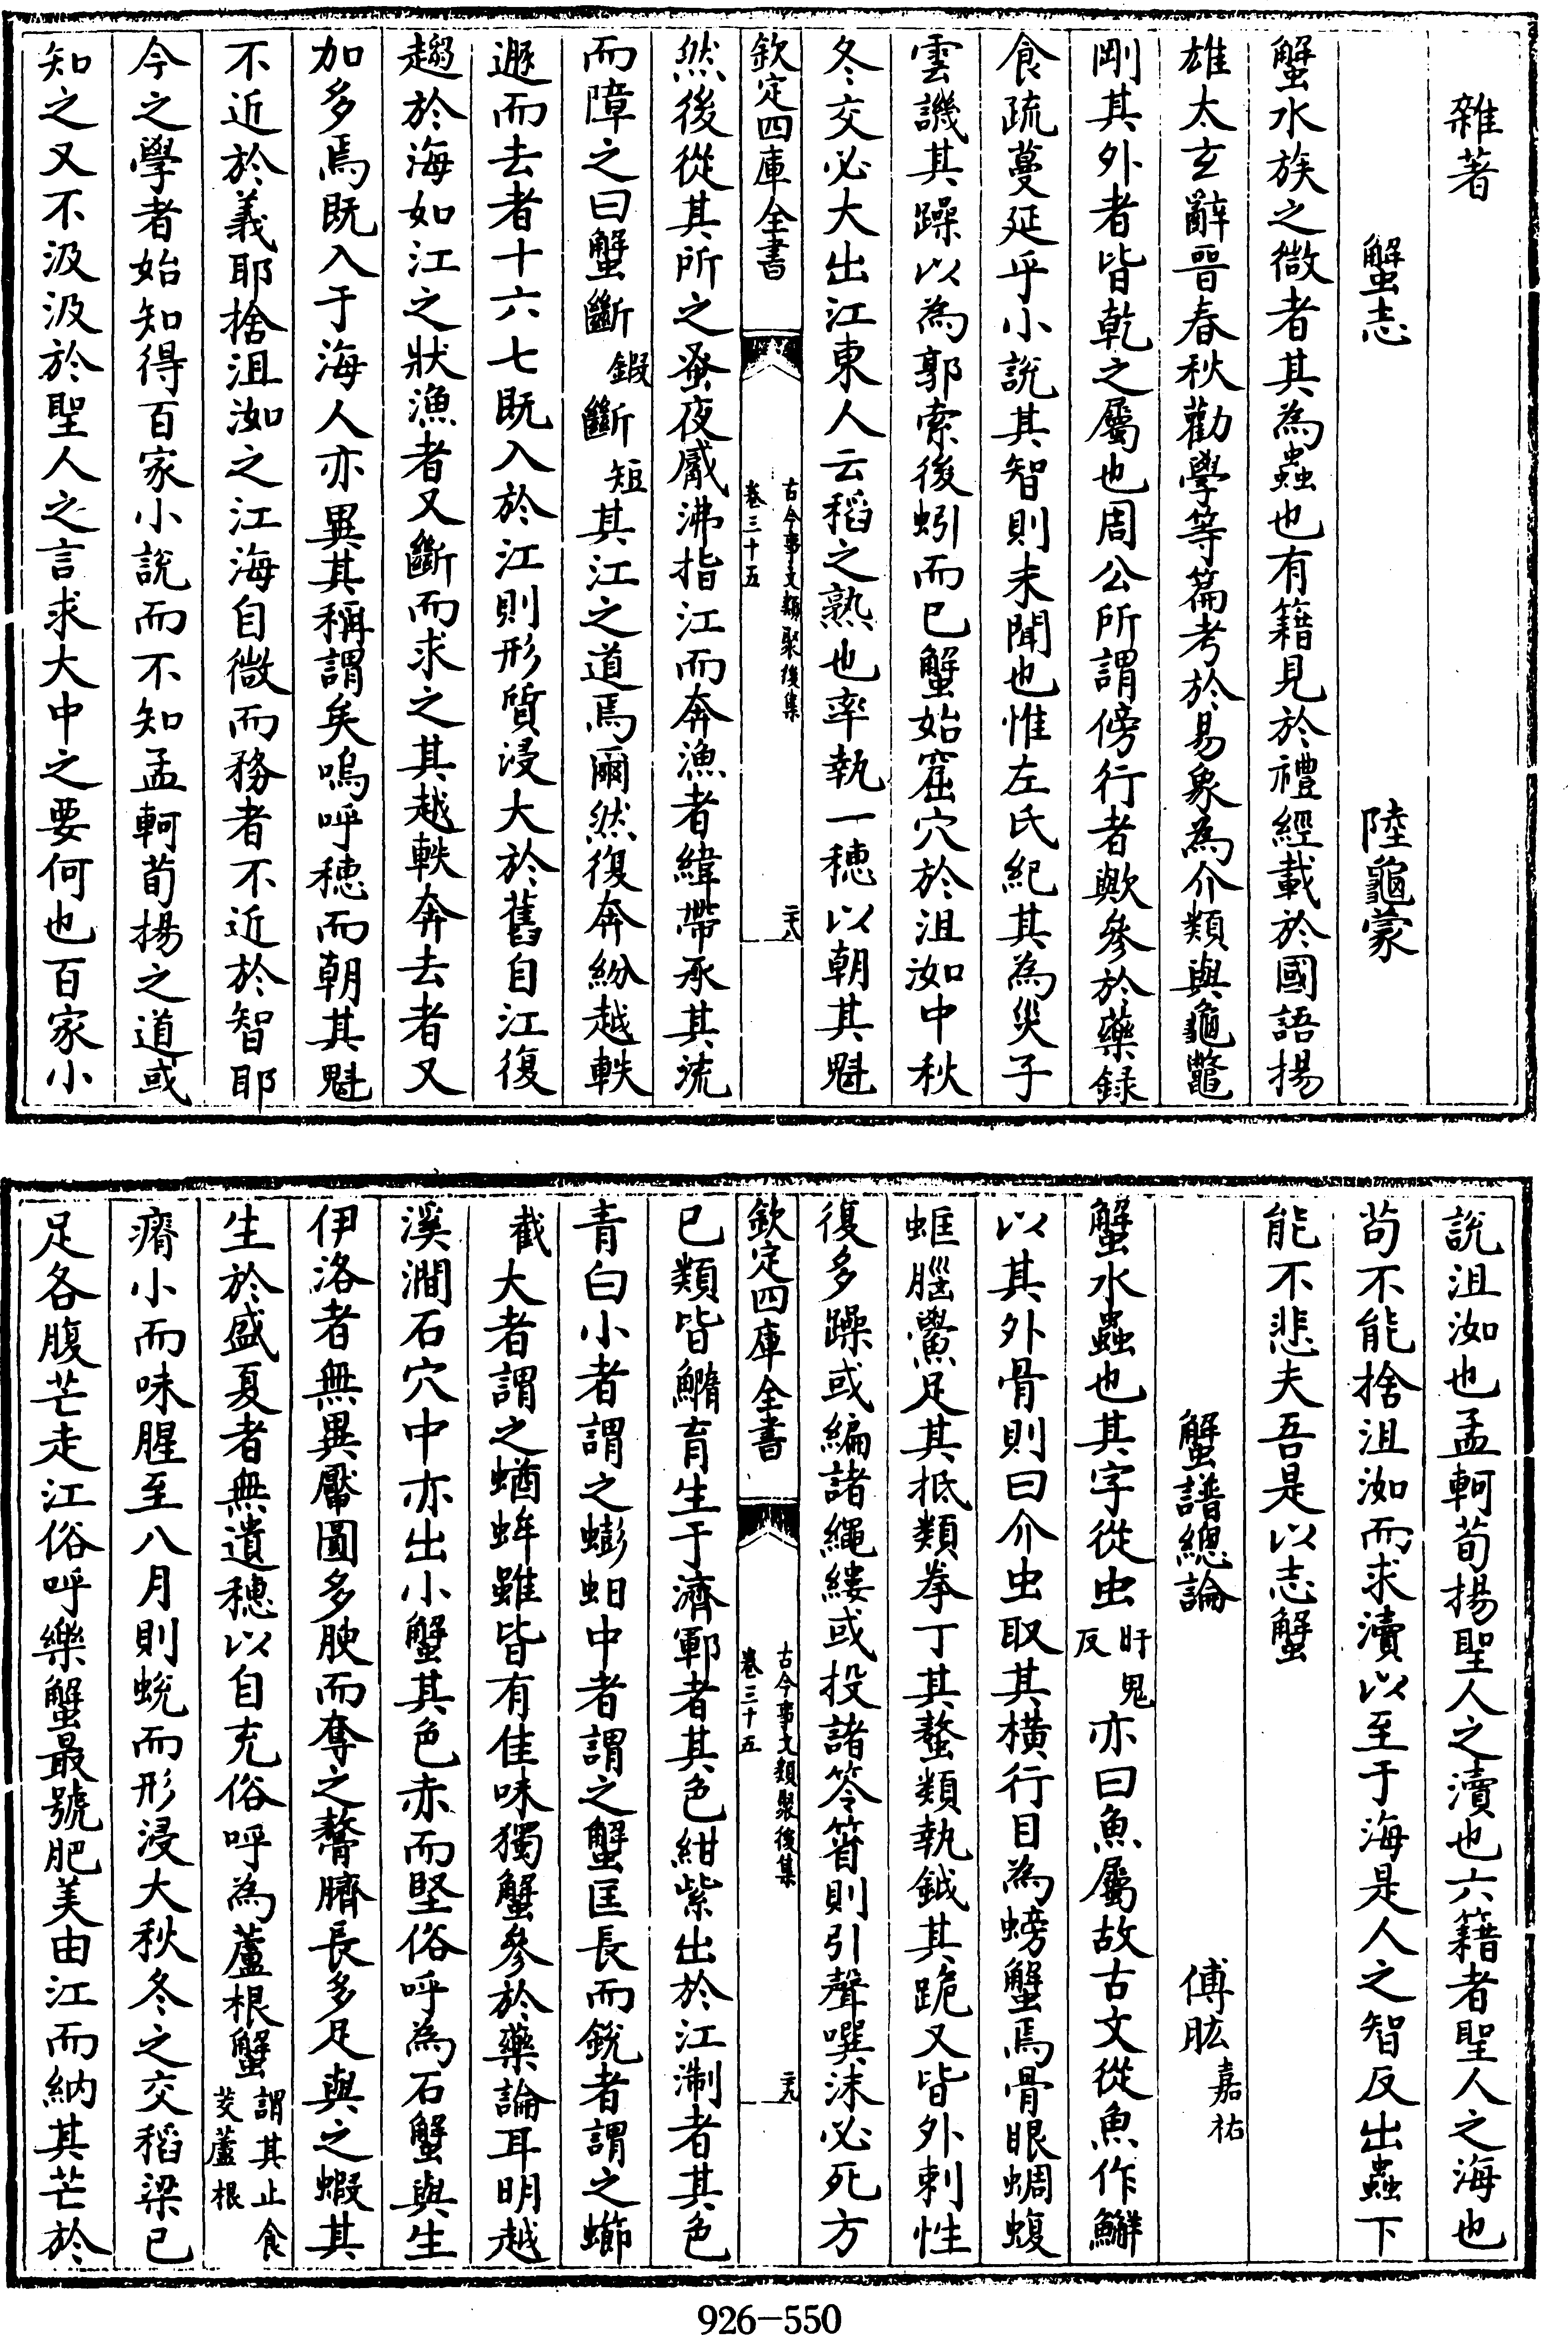 雜著
蟹志　陸龜蒙
蟹水族之微者其為蟲也有籍見於禮經載於國語揚
雄太玄辭晉春秋勸學等篇考於易象為介類與龜鼈
剛其外者皆乾之屬也周公所謂傍行者歟參於藥録
食疏蔓延乎小說其智則未聞也惟左氏紀其為災子
雲譏其躁以為郭索後蚓而已蟹始窟穴於沮洳中秋
冬交必大出江東人云稻之熟也率執一穗以朝其魁
欽定四庫全書
古今事文類聚後集
卷三十五
二十八
然後從其所之蚤夜觱沸指江而奔漁者緯帶承其流
而障之曰蟹斷鍛斷短其江之道焉爾然復奔紛越軼
遯而去者十六七既入於江則形質浸大於舊自江復
趨於海如江之狀漁者又斷而求之其越軼奔去者又
加多焉既入于海人亦異其稱謂矣嗚呼穂而朝其魁
不近於義耶捨沮洳之江海自微而務者不近於智耶
今之學者始知得百家小說而不知孟軻荀揚之道或
知之又不汲汲於聖人之言求大中之要何也百家小
說沮洳也孟軻荀揚聖人之瀆也六籍者聖人之海也
苟不能捨沮洳而求瀆以至于海是人之智反出蟲下
能不悲夫吾是以志蟹
蟹譜總論　傅肱嘉祐
蟹水蟲也其字從虫盱鬼反亦曰魚屬故古文從魚作䲒
以其外骨則曰介虫取其橫行目為螃蟹焉骨眼蜩蝮
蛭腦鱟足其抵類拳丁其螯類執鉞其跪又皆外刺性
復多躁或編諸繩縷或投諸笭箵則引聲噀沫必死方
欽定四庫全書
古今事文類聚後集
卷三十五
二十九
已類皆鰖育生于濟鄆者其色紺紫出於江淛者其色
青白小者謂之蟛蚏中者謂之蟹匡長而銳者謂之蠘
截大者謂之蝤蛑雖皆有佳味獨蟹參於藥論耳明越
溪澗石穴中亦出小蟹其色赤而堅俗呼為石蟹與生
伊洛者無異靨圓多腴而奪之螯臍長多足與之蝦其
生於盛夏者無遺穗以自充俗呼為蘆根蟹謂其止食茭蘆根
瘠小而味腥至八月則蛻而形浸大秋冬之交稻粱已
足各腹芒走江俗呼樂蟹最號肥美由江而納其芒於
926—550